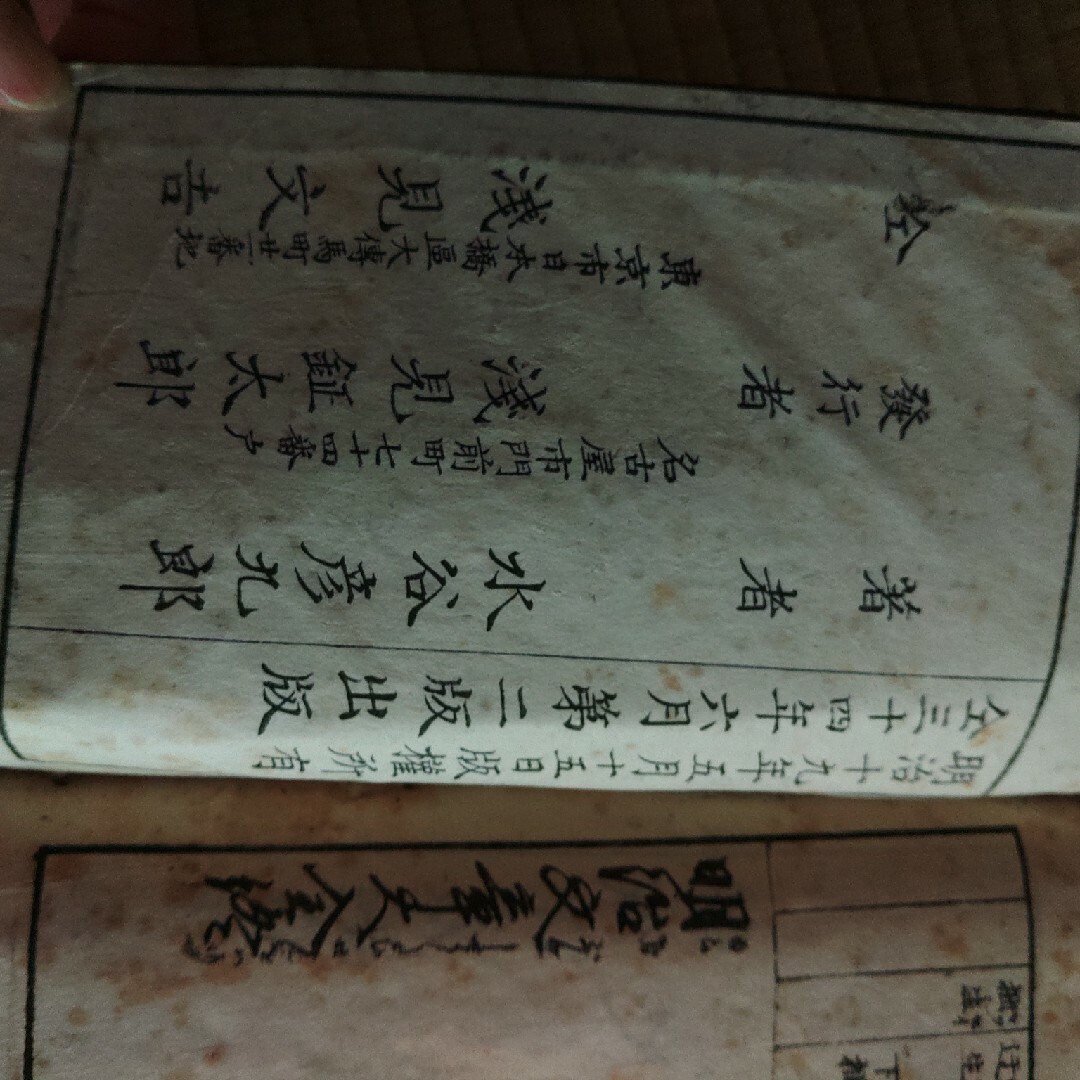 明治文章大全終
明治十九年五月十五日版權所有
仝三十四年六月第二版出版
著者 水谷彦九郎
名古屋市門前町七十四番戸
發行者 淺見鉦太郎
東京市日本橋區大傳馬町廿一番地
仝 淺見文吉